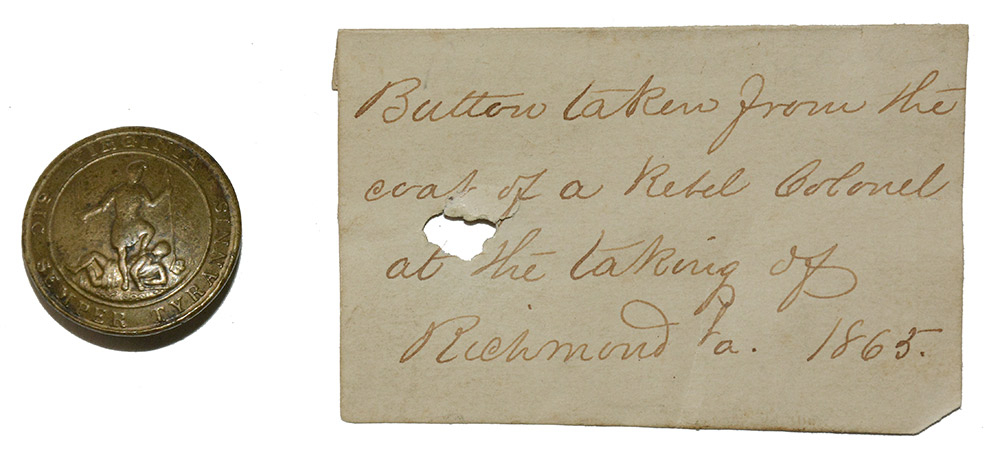 VIRGINIA
SIC SEMPER TYRANNIS
Button taken from the
coat of a Rebel Colonel
at the taking of
Richmond Va. 1865.